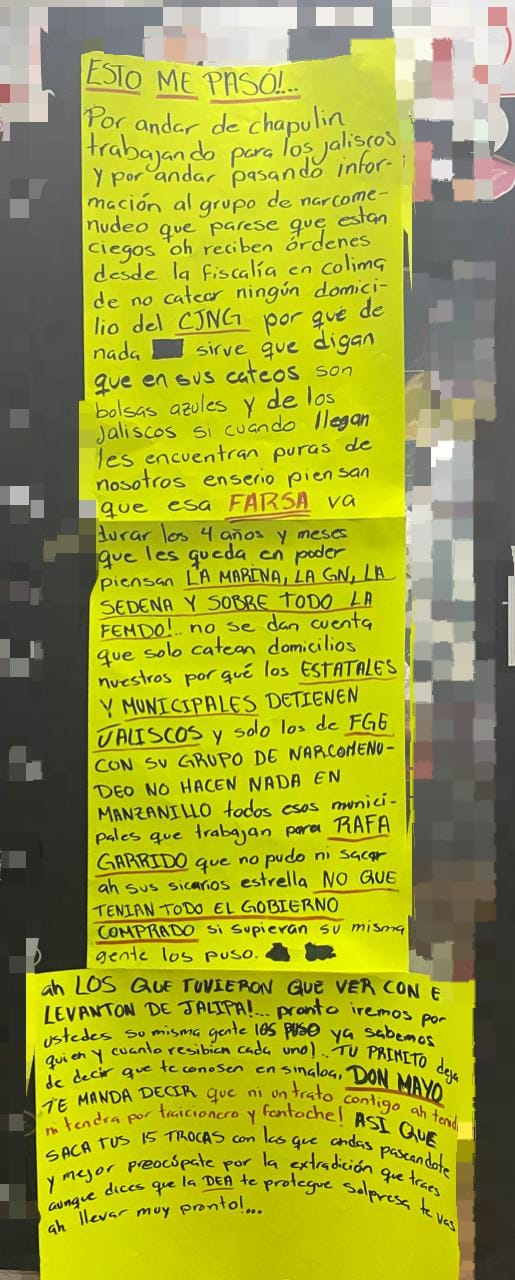 ESTO ME PASÓ!...
Por andar de chapulin
trabajando para los jaliscos
y por andar pasando infor-
mación al grupo de narcome-
nudeo que parese que estan
ciegos oh reciben órdenes
desde la fiscalía en colima
de no catear ningún domici-
lio del CJNG por qué de
nada sirve que digan
que en sus cateos son
bolsas azules y de los
Jaliscos si cuando llegan
les encuentran puras de
nosotros enserio piensan
que esa FARSA va
durar los 4 años y meses
que les queda en poder
piensan LA MARINA, LA GN, LA
SEDENA Y SOBRE TODO LA
FEMDO!.. no se dan cuenta
que solo catean domicilios
nuestros por qué los ESTATALES
Y MUNICIPALES DETIENEN
JALISCOS y solo los de FGE
CON SU GRUPO DE NARCOMENU-
DEO NO HACEN NADA EN
MANZANILLO todos esos munici-
pales que trabajan para RAFA
GARRIDO que no pudo ni sacar
ah sus sicarios estrella NO QUE
TENIAN TODO EL GOBIERNO
COMPRADO si supieran su misma
gente los puso.
ah LOS QUE TUVIERON QUE VER CON E
LEVANTON DE JALIPA!... pronto iremos por
ustedes su misma gente los puso ya sabemos
quien y cuanto resibian cada uno!.. TU PRIMITO deja
de decir que te conosen en sinaloa, DON MAYO
TE MANDA DECIR que ni un trato contigo ah tenid
ni tendra por traicionero y fantoche! ASI QUE
SACA TUS 15 TROCAS con las que andas paseandote
y mejor preocúpate por la extradición que traes
aunque dices que la DEA te protegue solpresa te vas
ah llevar muy pronto!...